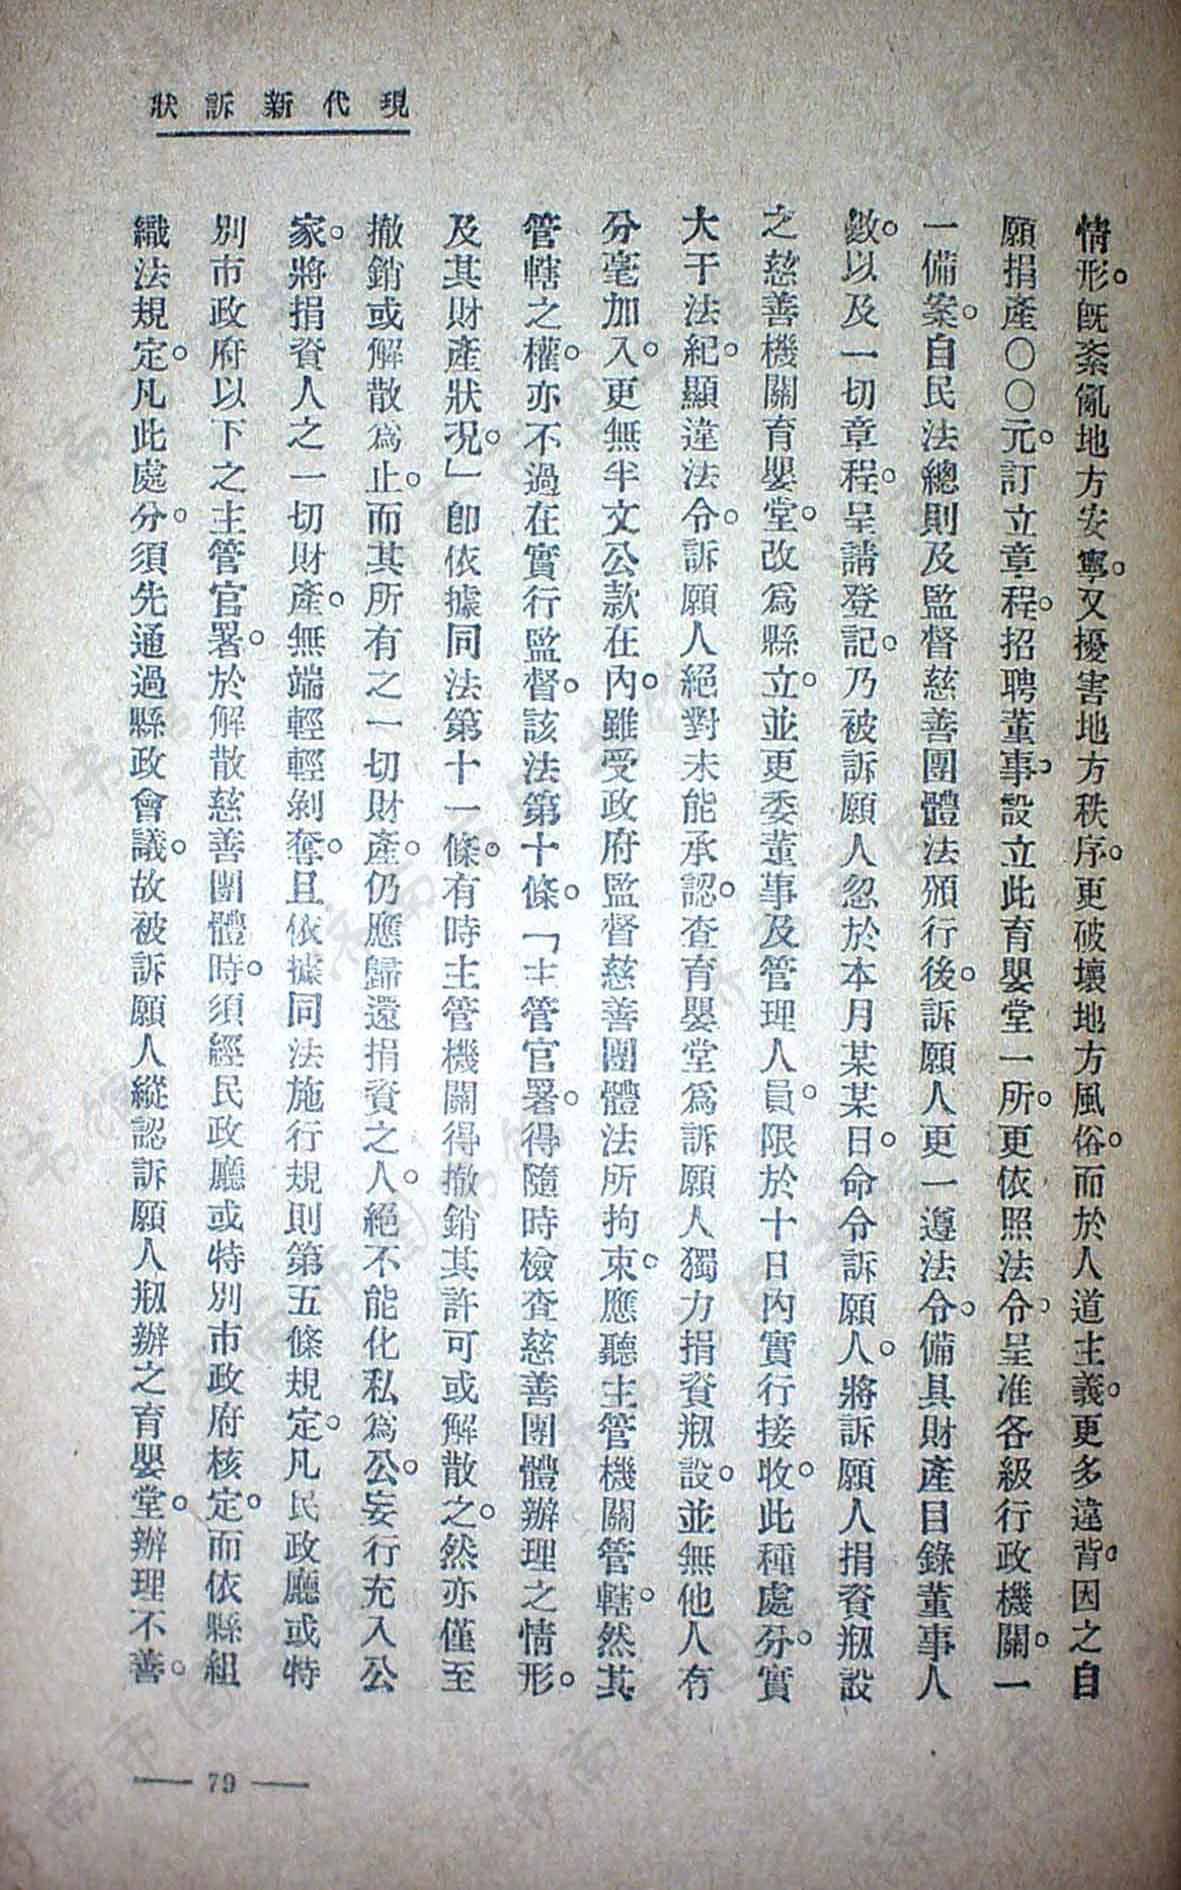 現代新訴狀
情形。既紊亂地方安寧。又擾害地方秩序。更破壞地方風俗。而於人道主義。更多違背。因之自
願捐產〇〇元。訂立章程。招聘董事。設立此育嬰堂一所。更依照法令。呈准各級行政機關。一
一備案。自民法總則及監督慈善團體法頒行後。訴願人更一遵法令。備具財產目錄董事人
數。以及一切章程。呈請登記。乃被訴願人忽於本月某某日。命令訴願人。將訴願人捐資剏設
之慈善機關育嬰堂。改爲縣立。並更委董事及管理人員。限於十日內實行接收。此種處分。實
大干法紀。顯違法令。訴願人絕對未能承認。查育嬰堂爲訴願人獨力捐資剏設。並無他人有
分毫加入。更無半文公款在內。雖受政府監督慈善團體法所拘束。應聽主管機關管轄。然其
管轄之權。亦不過在實行監督。該法第十條。「主管官署。得隨時檢查慈善團體辦理之情形。
及其財產狀况。」卽依據同法第十一條。有時主管機關得撤銷其許可或解散之。然亦僅至
撤銷或解散爲止。而其所有之一切財產。仍應歸還捐資之人。絕不能化私爲公。妄行充入公
家。將捐資人之一切財產。無端輕輕剝奪。且依據同法施行規則第五條規定。凡民政廳或特
別市政府以下之主管官署。於解散慈善團體時。須經民政廳或特別市政府核定。而依縣組
織法規定。凡此處分。須先通過縣政會議。故被訴願人縱認訴願人剏辦之育嬰堂。辦理不善。
— 79 —